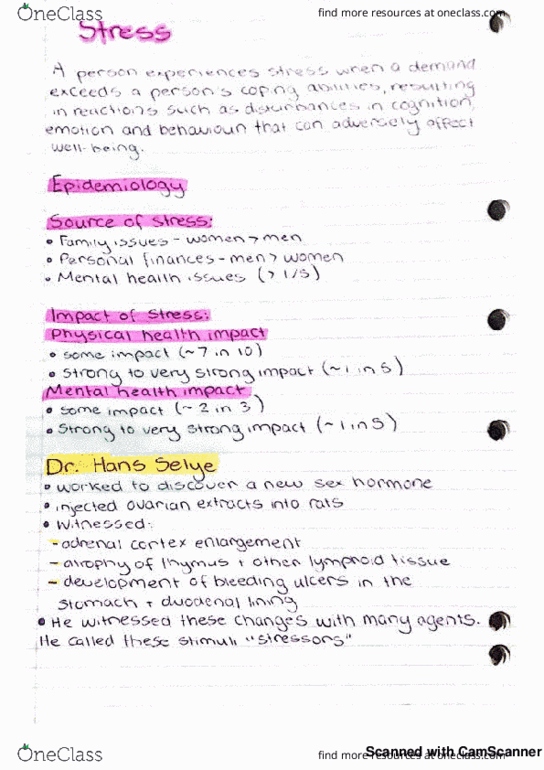 OneClass
find more resources at oneclass.com
Stress
A person experiences stress when a demand
exceeds a person's coping abilities, resulting
in reactions such as disturbances in cognition,
emotion and behaviour that can adversely affect
well-being.
Epidemiology
Source of stress:
• Family issues - women > men
• Personal finances - men > women
• Mental health issues (> 1/5)
Impact of Stress:
Physical health impact
• some impact (~7 in 10)
• Strong to very strong impact (~1 in 5)
Mental health impact
• some impact (~2 in 3)
• Strong to very strong impact (~1 in 5)
Dr. Hans Selye
• worked to discover a new sex hormone
• injected ovarian extracts into rats
• Witnessed:
- adrenal cortex enlargement
- atrophy of thymus + other lymphoid tissue
- development of bleeding ulcers in the
stomach + duodenal lining
• He witnessed these changes with many agents.
He called these stimuli "stressors"
OneClass
find more resources at oneclass.com
Scanned with CamScanner